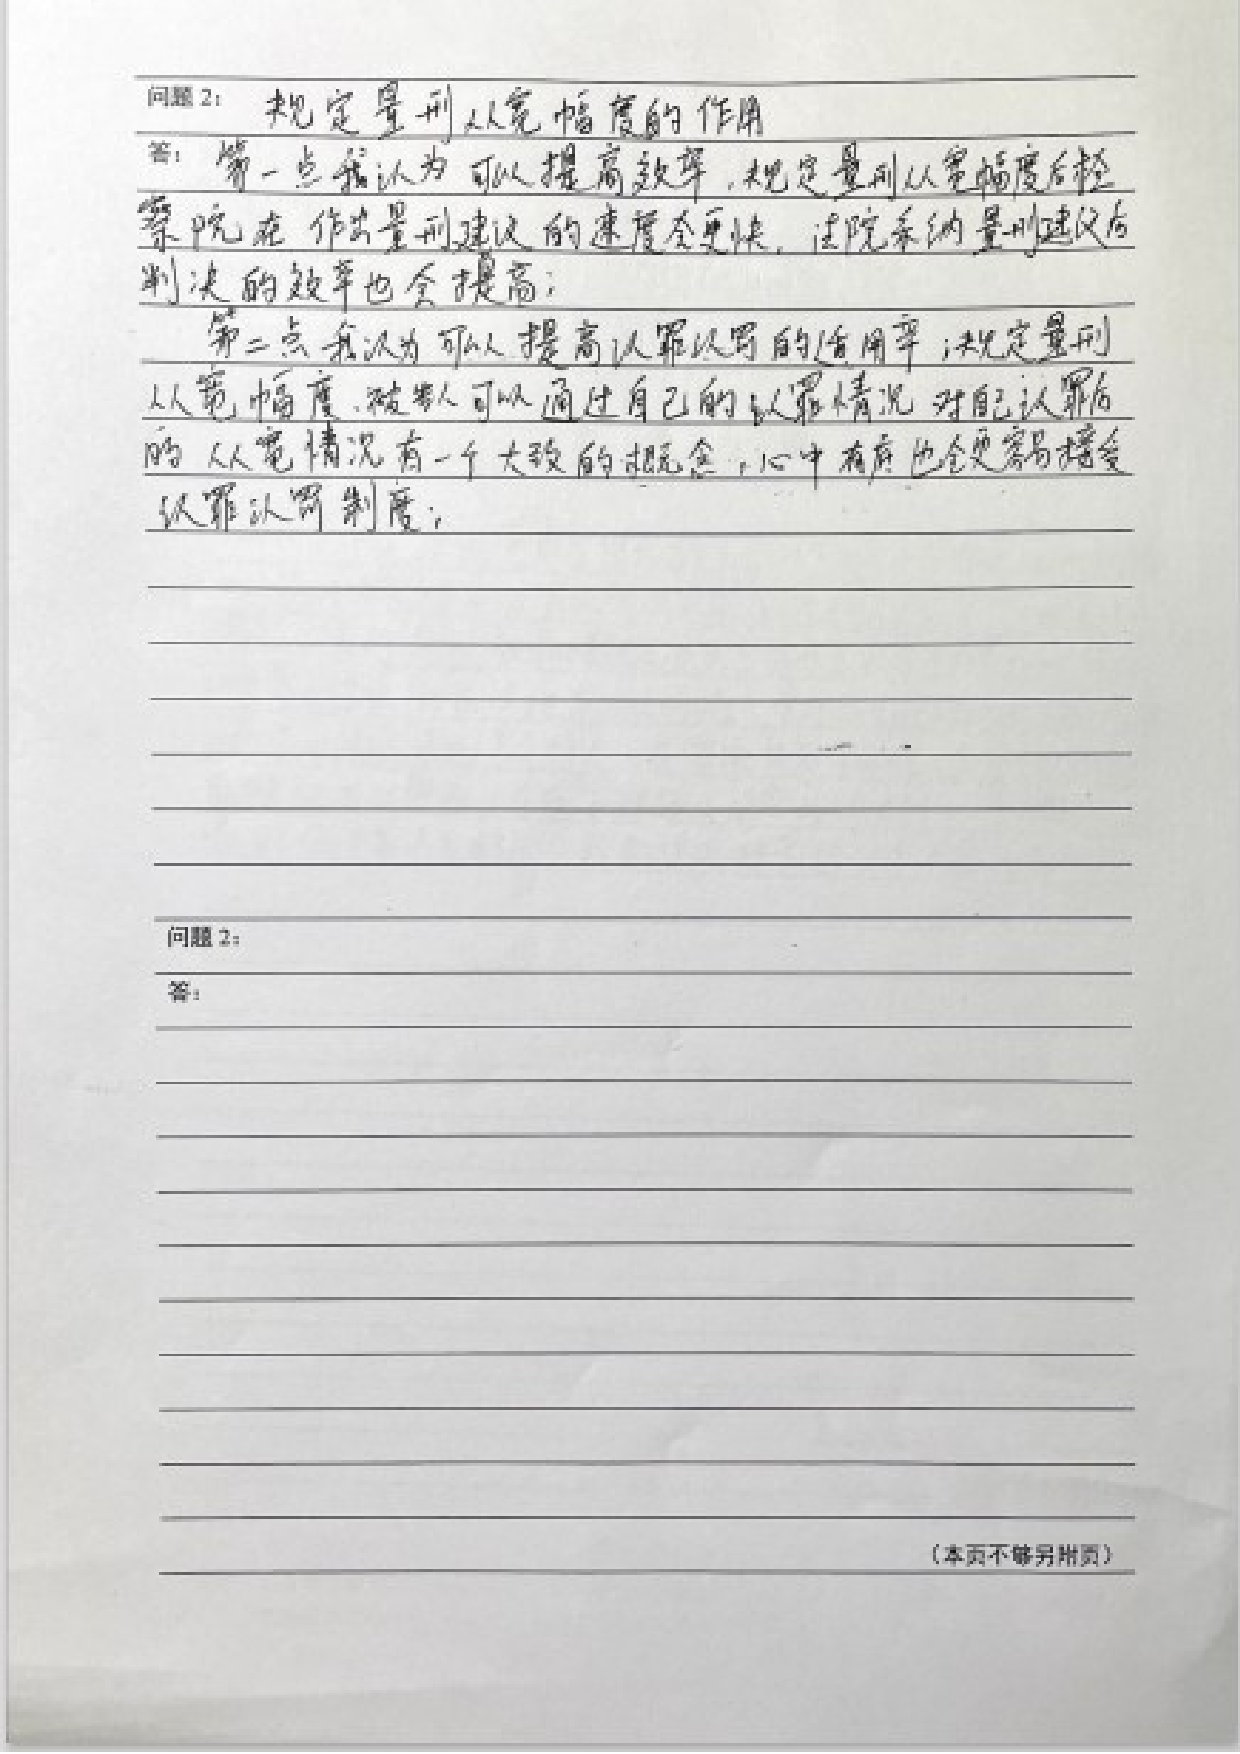 问题 2： 规定量刑从宽幅度的作用
答： 第一点我认为可以提高效率，规定量刑从宽幅度后检
察院在作出量刑建议的速度会更快，法院采纳量刑建议后
判决的效率也会提高；
第二点我认为可以提高认罪认罚的适用率；规定量刑
从宽幅度、被告人可以通过自己的认罪情况对自己认罪后
的从宽情况有一个大致的概念，心中有底也会更容易接受
认罪认罚制度；
问题 2：
答：
（本页不够另附页）